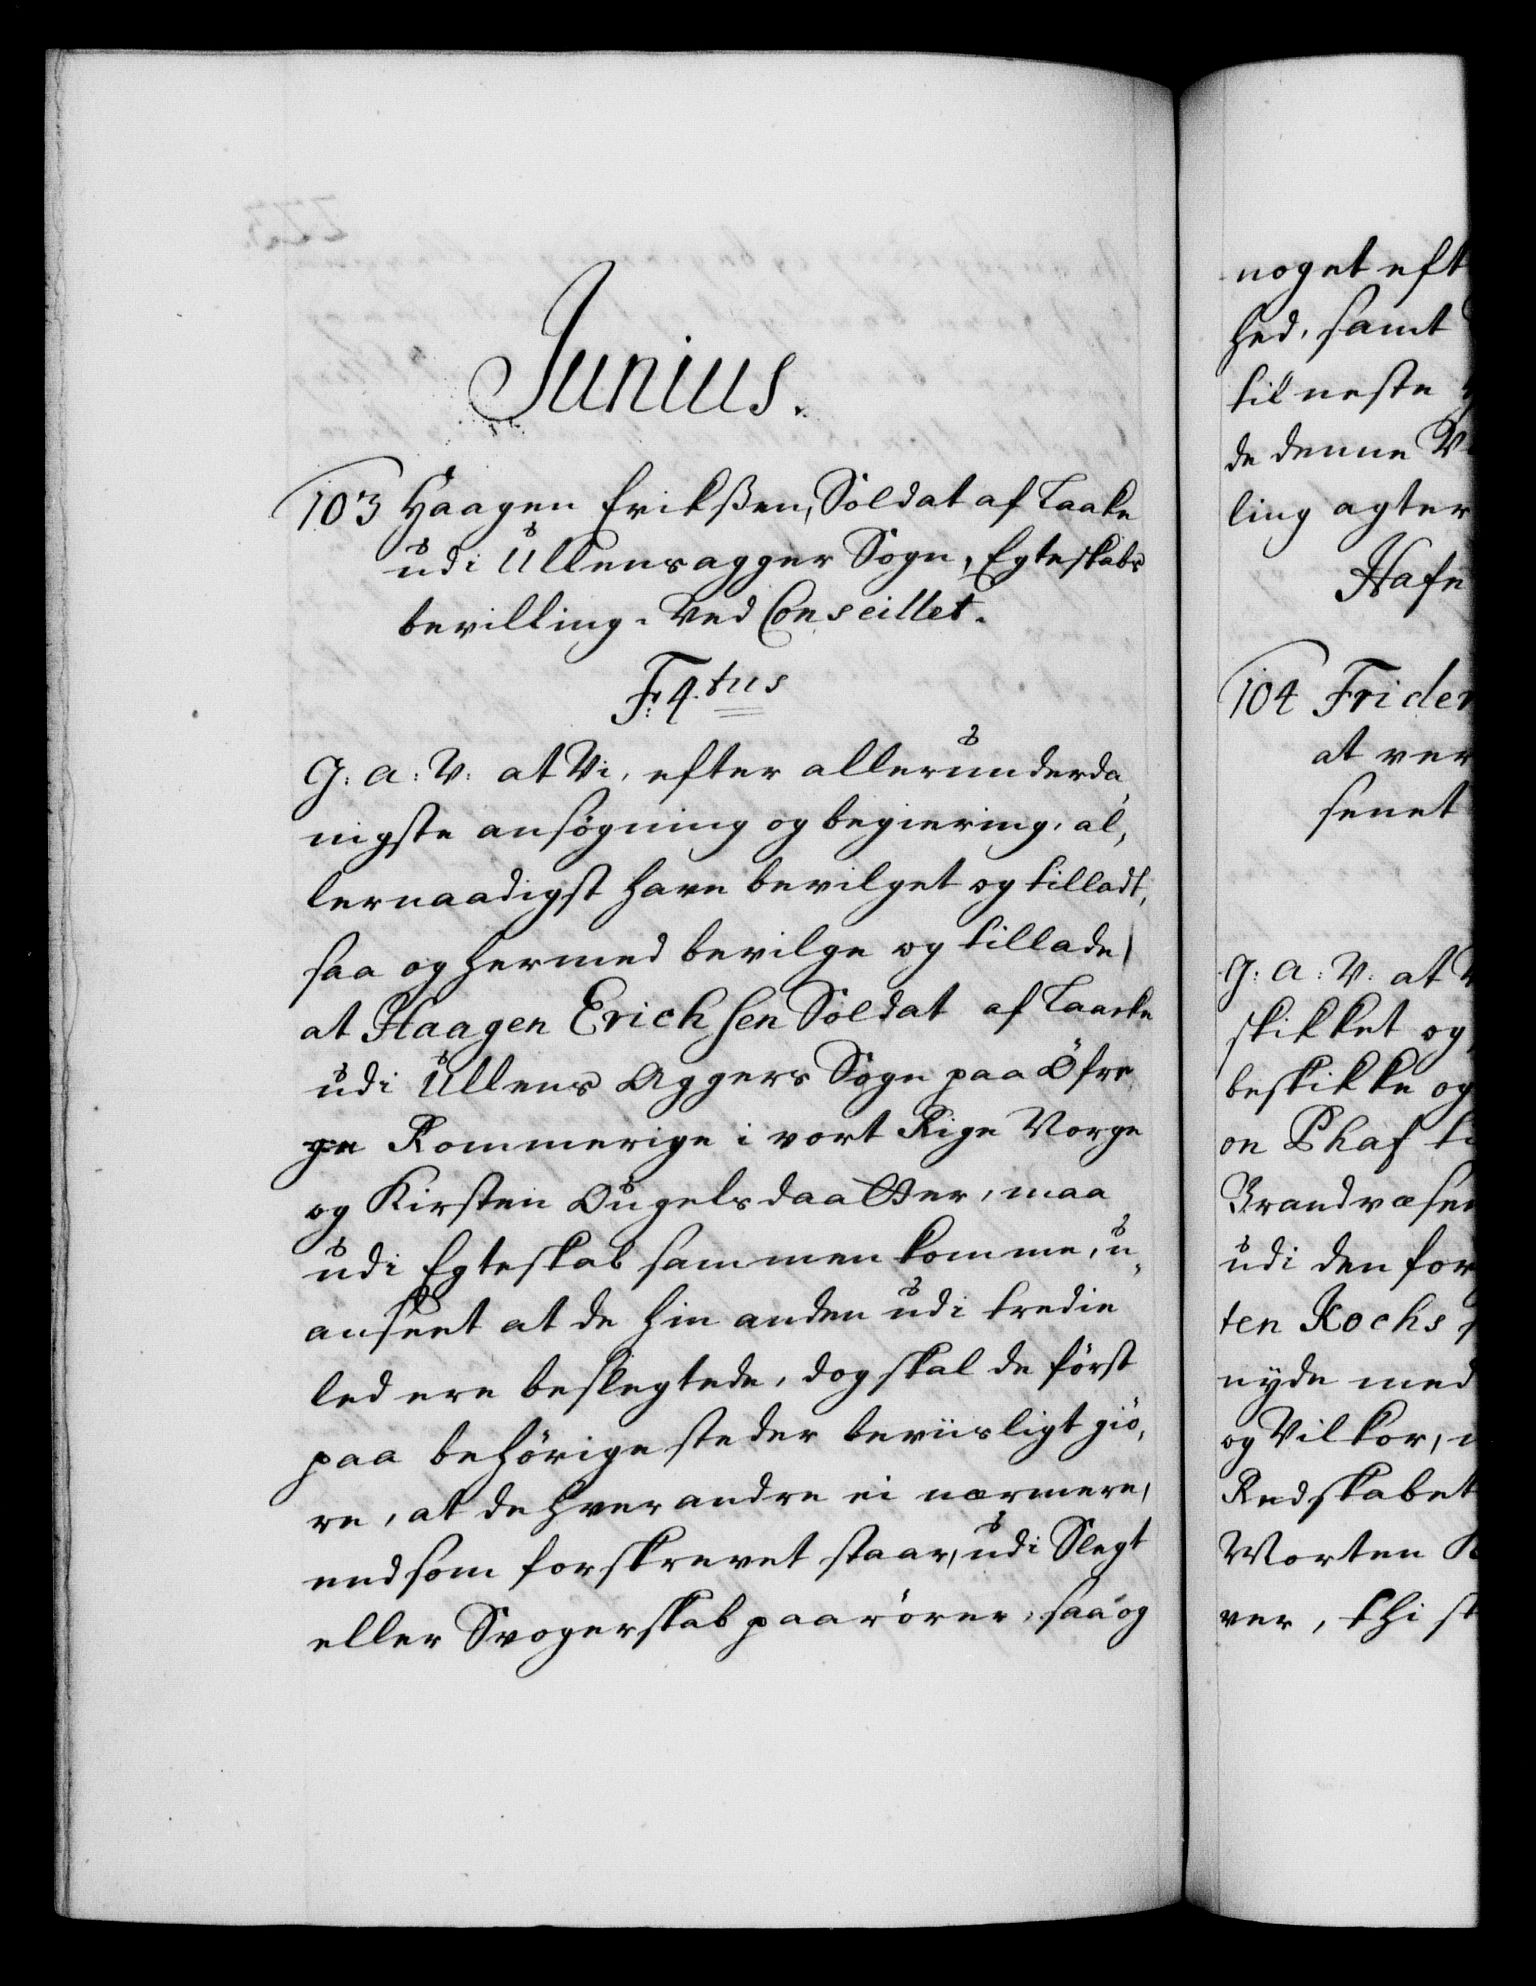 Junius.
103 Haagen Erikßen, Soldat af Laake
udi Ullensagger Sogn, Egteskabs
bevilling. Ved Conseillet.
F: 4.tus
G: A: V: at Vi, efter allerunderda„
nigste ansøgning og begiering, al„
lernaadigst have bevilget og tilladt,
saa og hermed bevilge og tillade,
at Haagen Erichsen Soldat af Laacke
udi Ullens Aggers Sogn paa Öfre
Rommerige i vort Rige Norge
og Kirsten Engelsdaatter, maa
udi Egteskab sammenkomme, u„
anseet at de hin anden udi tredie
led ere beslegtede, dog skal de först
paa behörige steder beviisligt giö„
re, at de hverandre ei nærmere,
end som forskrevet staar, udi Slegt
eller Svogerskab paarörer, saa og
noget eft
hed, samt
til neste
de denne
ling agter
Hafn
104 Frider
at ver
senet
G: A: V: at V
skikket og
beskikke og
on Phaf
Brandvæsen
udi den for
ten Kochs
nyde med
og Vilkor,
Redskabet
Morten K
ver, thi s